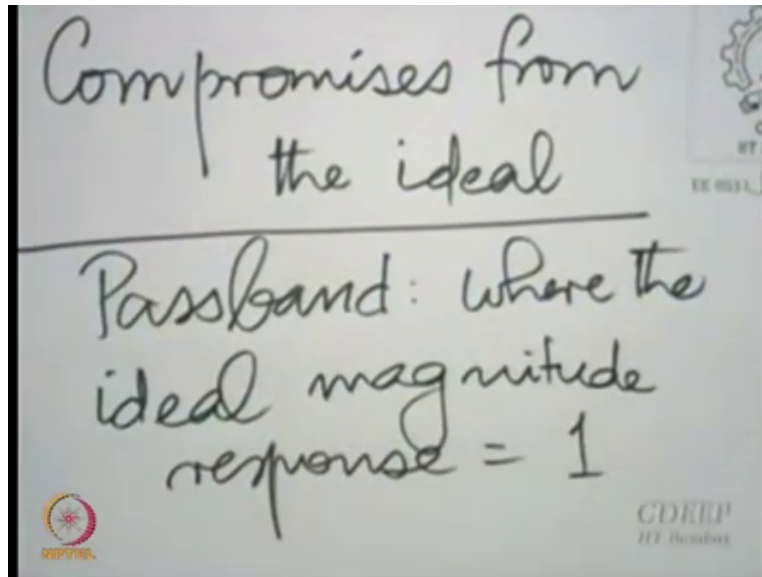 Compromises from
the ideal
Passband: where the
ideal magnitude
response = 1
NPTEL
CDEEP
IIT Bombay